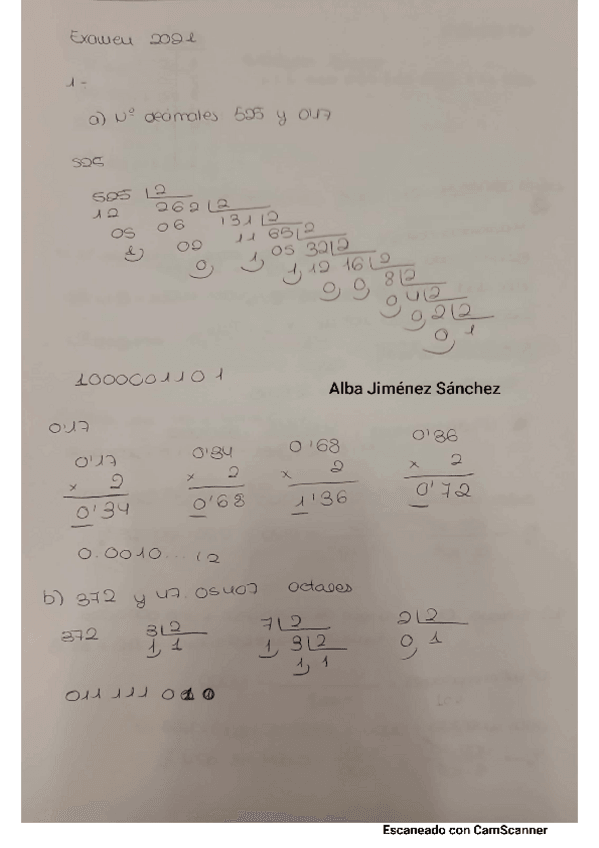 Examen 2021
1-
a) Nº decimales 525 y 0'17
525
525 2
12 262 2
05 06 131 2
1 02 11 65 2
0 1 05 32 2
1 12 16 2
0 0 8 2
0 4 2
0 2 2
0 1
1000001101
Alba Jiménez Sánchez
0'17
0'17 0'34 0'68 0'36
x 2 x 2 x 2 x 2
0'34 0'68 1'36 0'72
0.0010...12
b) 372 y 47.05407 octales
372 3 2 7 2 2 2
1 1 1 3 2 0 1
1 1
011 111 010
Escaneado con CamScanner